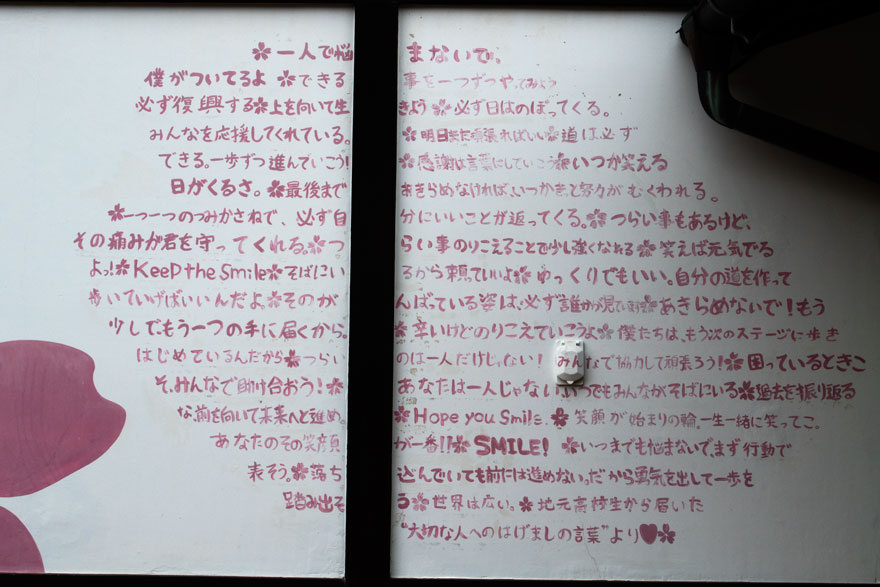 ✿一人で悩まないで、
僕がついてるよ✿できる事を一つずつやってみよう
必ず復興する✿上を向いて生きよう✿必ず日はのぼってくる。
みんなを応援してくれている。✿明日また頑張ればいい✿道は必ず
できる。一歩ずつ進んでいこう!✿感謝は言葉にしていこう✿いつか笑える
日がくるさ。✿最後まであきらめなければ、いつかきっと努力がむくわれる。
✿一つ一つのつみかさねで、必ず自分にいいことが返ってくる。✿つらい事もあるけど、
その痛みが君を守ってくれる。✿つらい事のりこえることで少し強くなれる✿笑えば元気でる
よっ!✿KeeP the Smile✿そばにいるから頼っていいよ✿ゆっくりでもいい。自分の道を作って
歩いていけばいいんだよ。✿そのがんばっている姿は、必ず誰かが見ている✿あきらめないで!もう
少しでもう一つの手に届くから。✿辛いけどのりこえていこうよ✿僕たちは、もう次のステージに歩き
はじめているんだから✿つらいのは一人だけじゃない!みんなで協力して頑張ろう!✿困っているときこ
そ、みんなで助け合おう!✿あなたは一人じゃないいつでもみんながそばにいる✿過去を振り返る
な前を向いて未来へと進め。✿Hope you Smile.✿笑顔が始まりの輪。一生一緒に笑ってこ。
あなたのその笑顔が一番!!✿SMILE!✿いつまでも悩まないで、まず行動で
表そう。✿落ち込んでいても前には進めない。だから勇気を出して一歩を
踏み出そう✿世界は広い。✿地元高校生から届いた
"大切な人へのはげましの言葉"より♥✿